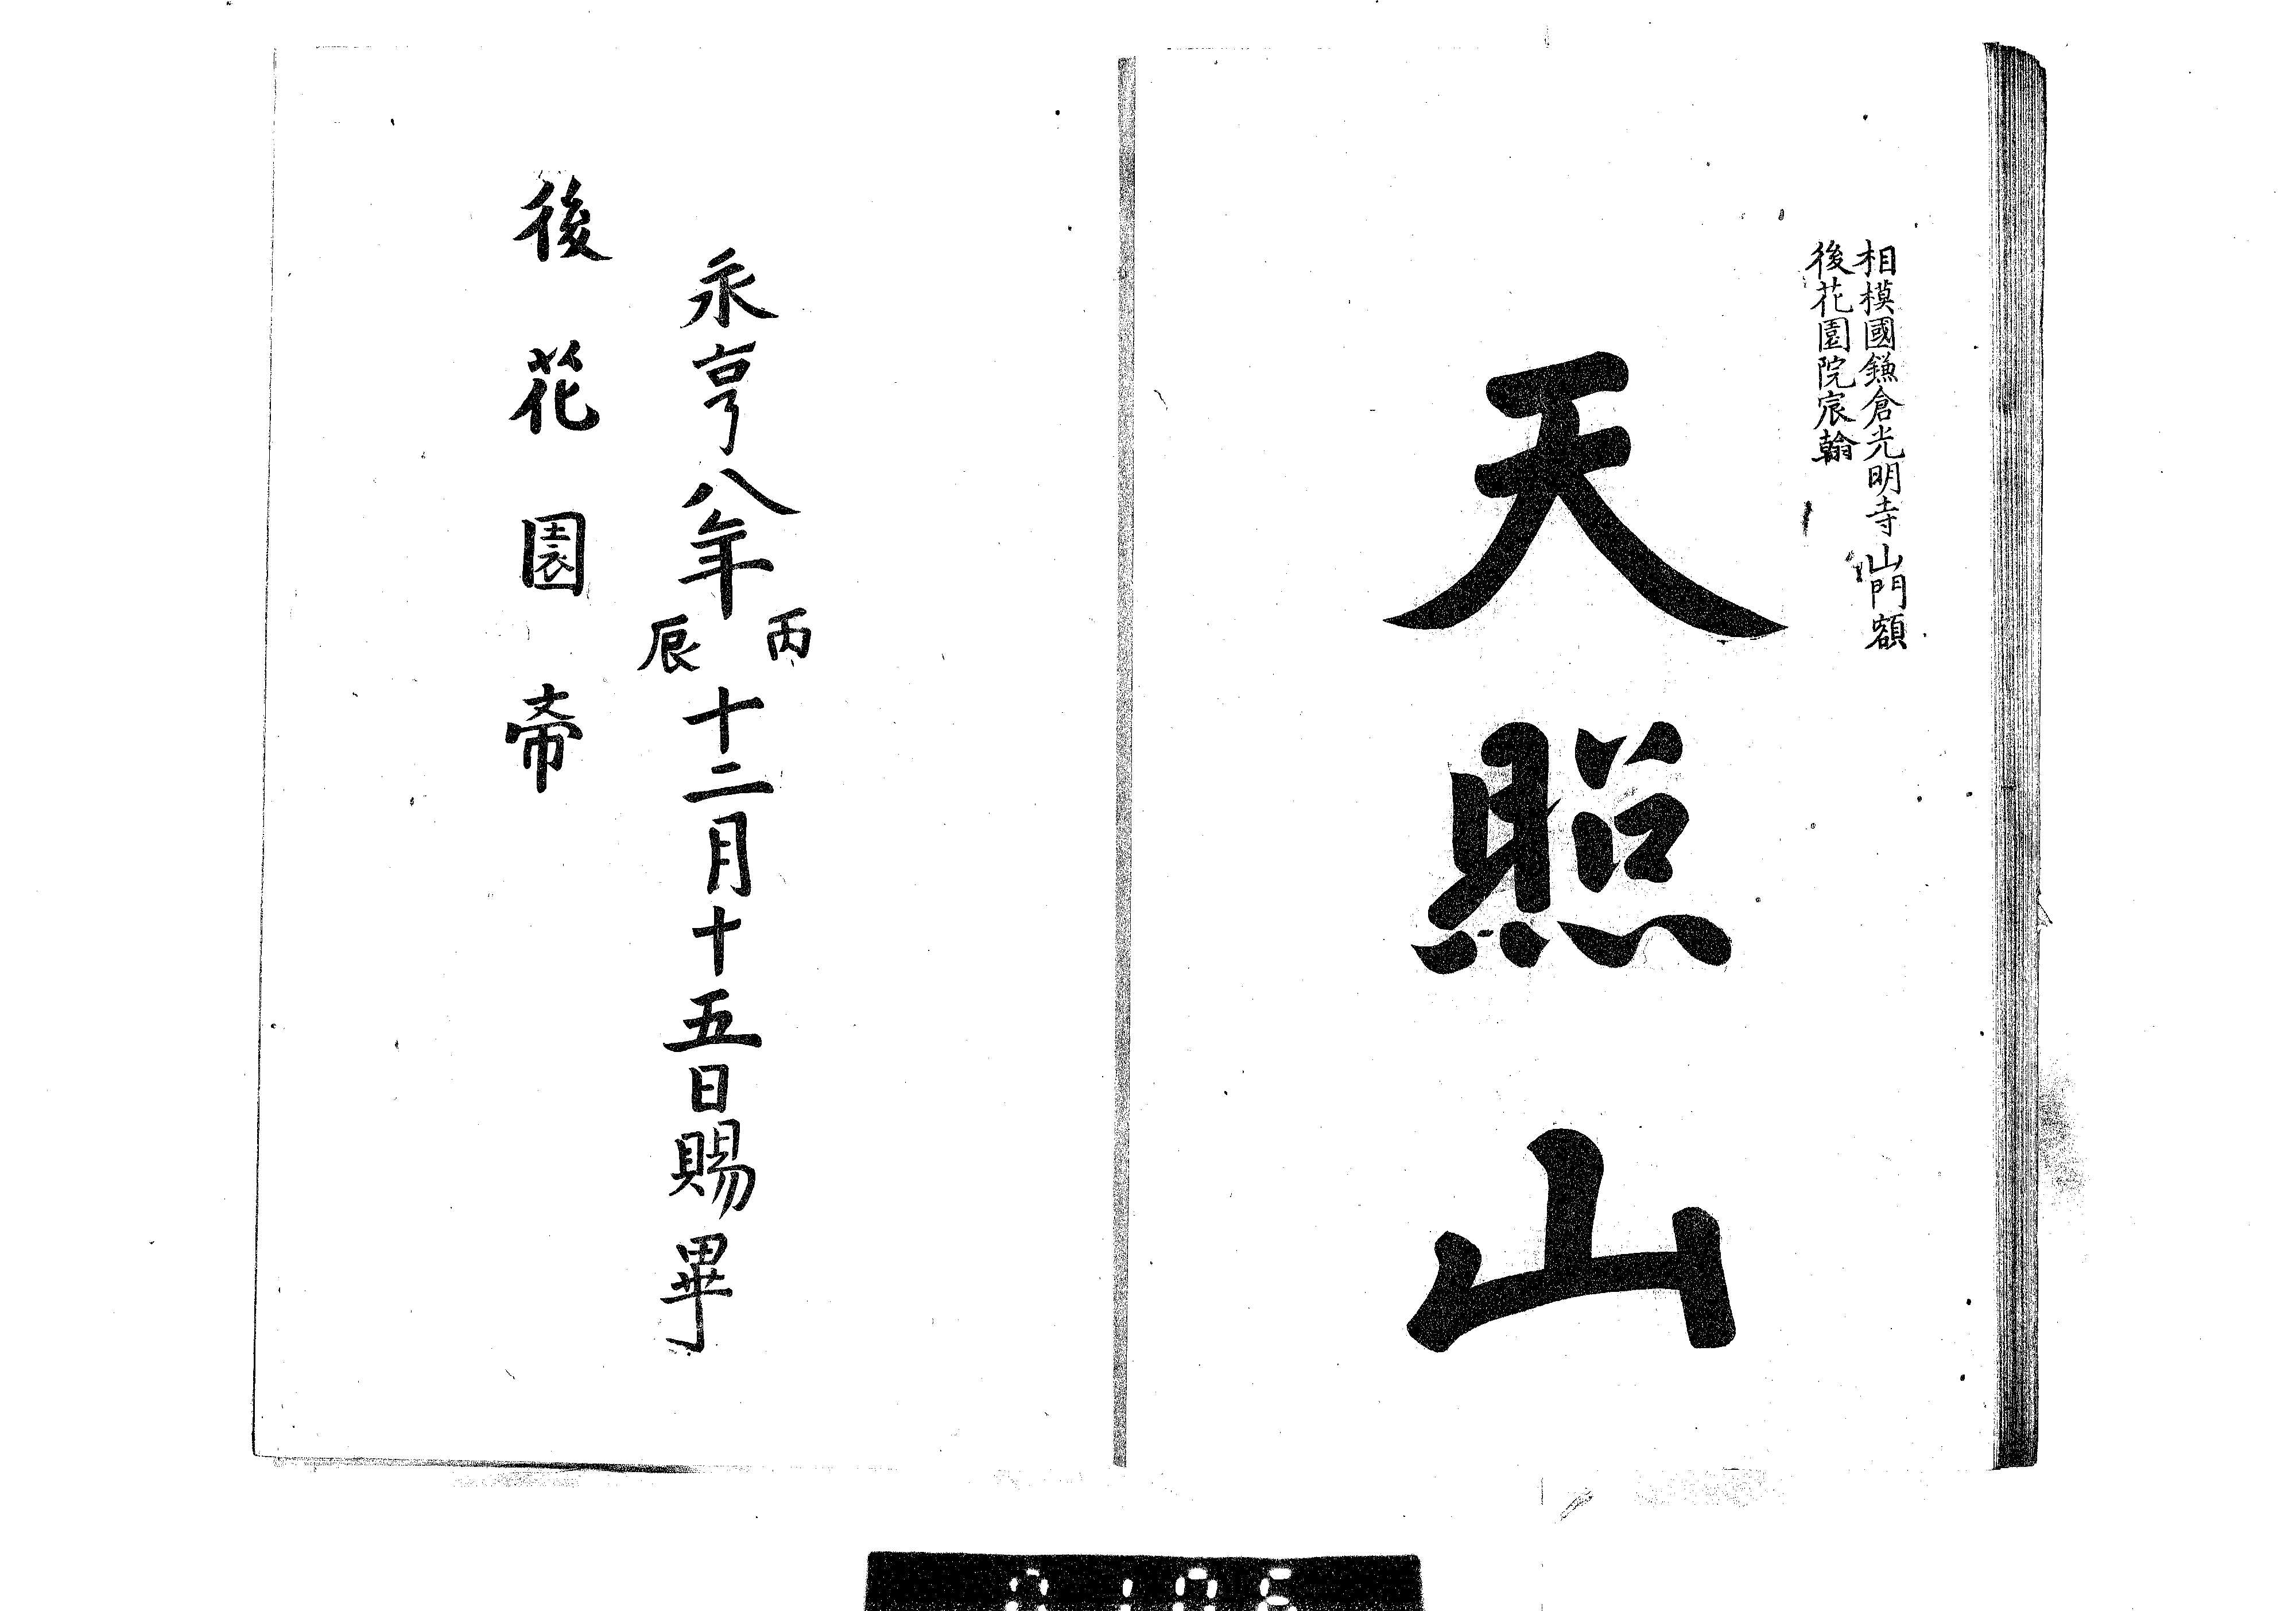 相模國鎌倉光明寺山門額
後花園院宸翰
天照山
永享八年丙辰十二月十五日賜畢
後花園帝